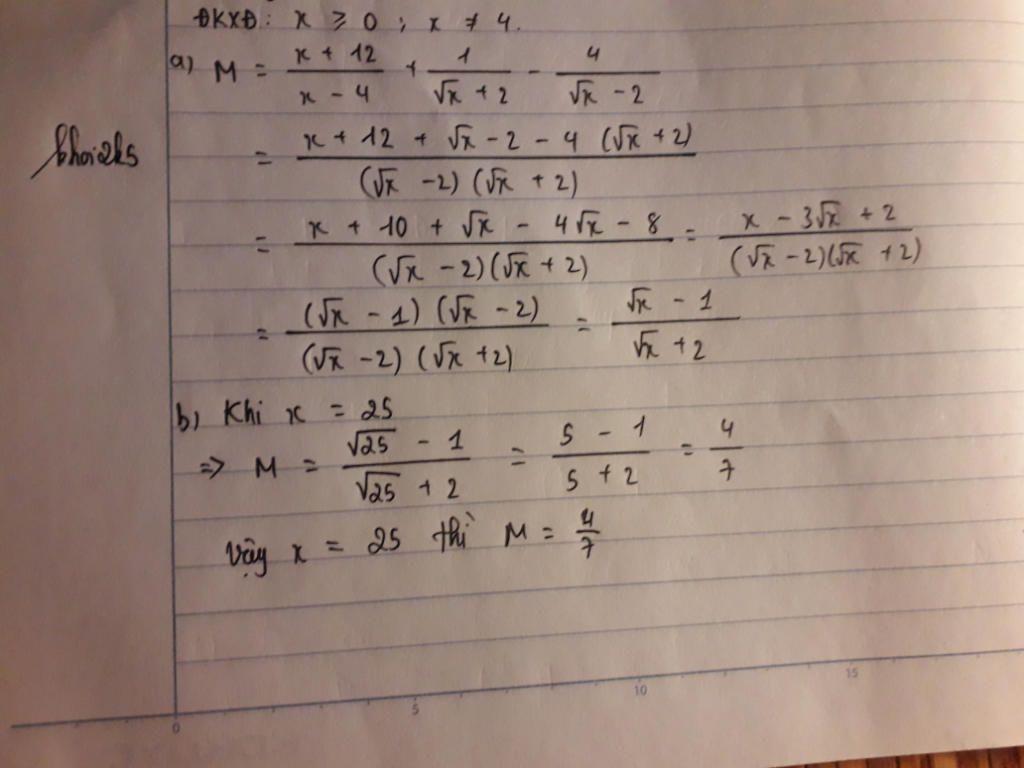 ĐKXĐ: x ≥ 0 ; x ≠ 4.
a) M = (x + 12)/(x - 4) + 1/(√x + 2) - 4/(√x - 2)
khoi2k5
= (x + 12 + √x - 2 - 4 (√x + 2))/((√x - 2) (√x + 2))
= (x + 10 + √x - 4√x - 8)/((√x - 2)(√x + 2)) = (x - 3√x + 2)/((√x - 2)(√x + 2))
= ((√x - 1) (√x - 2))/((√x - 2) (√x + 2)) = (√x - 1)/(√x + 2)
b) Khi x = 25
=> M = (√25 - 1)/(√25 + 2) = (5 - 1)/(5 + 2) = 4/7
Vậy x = 25 thì M = 4/7
0 5 10 15